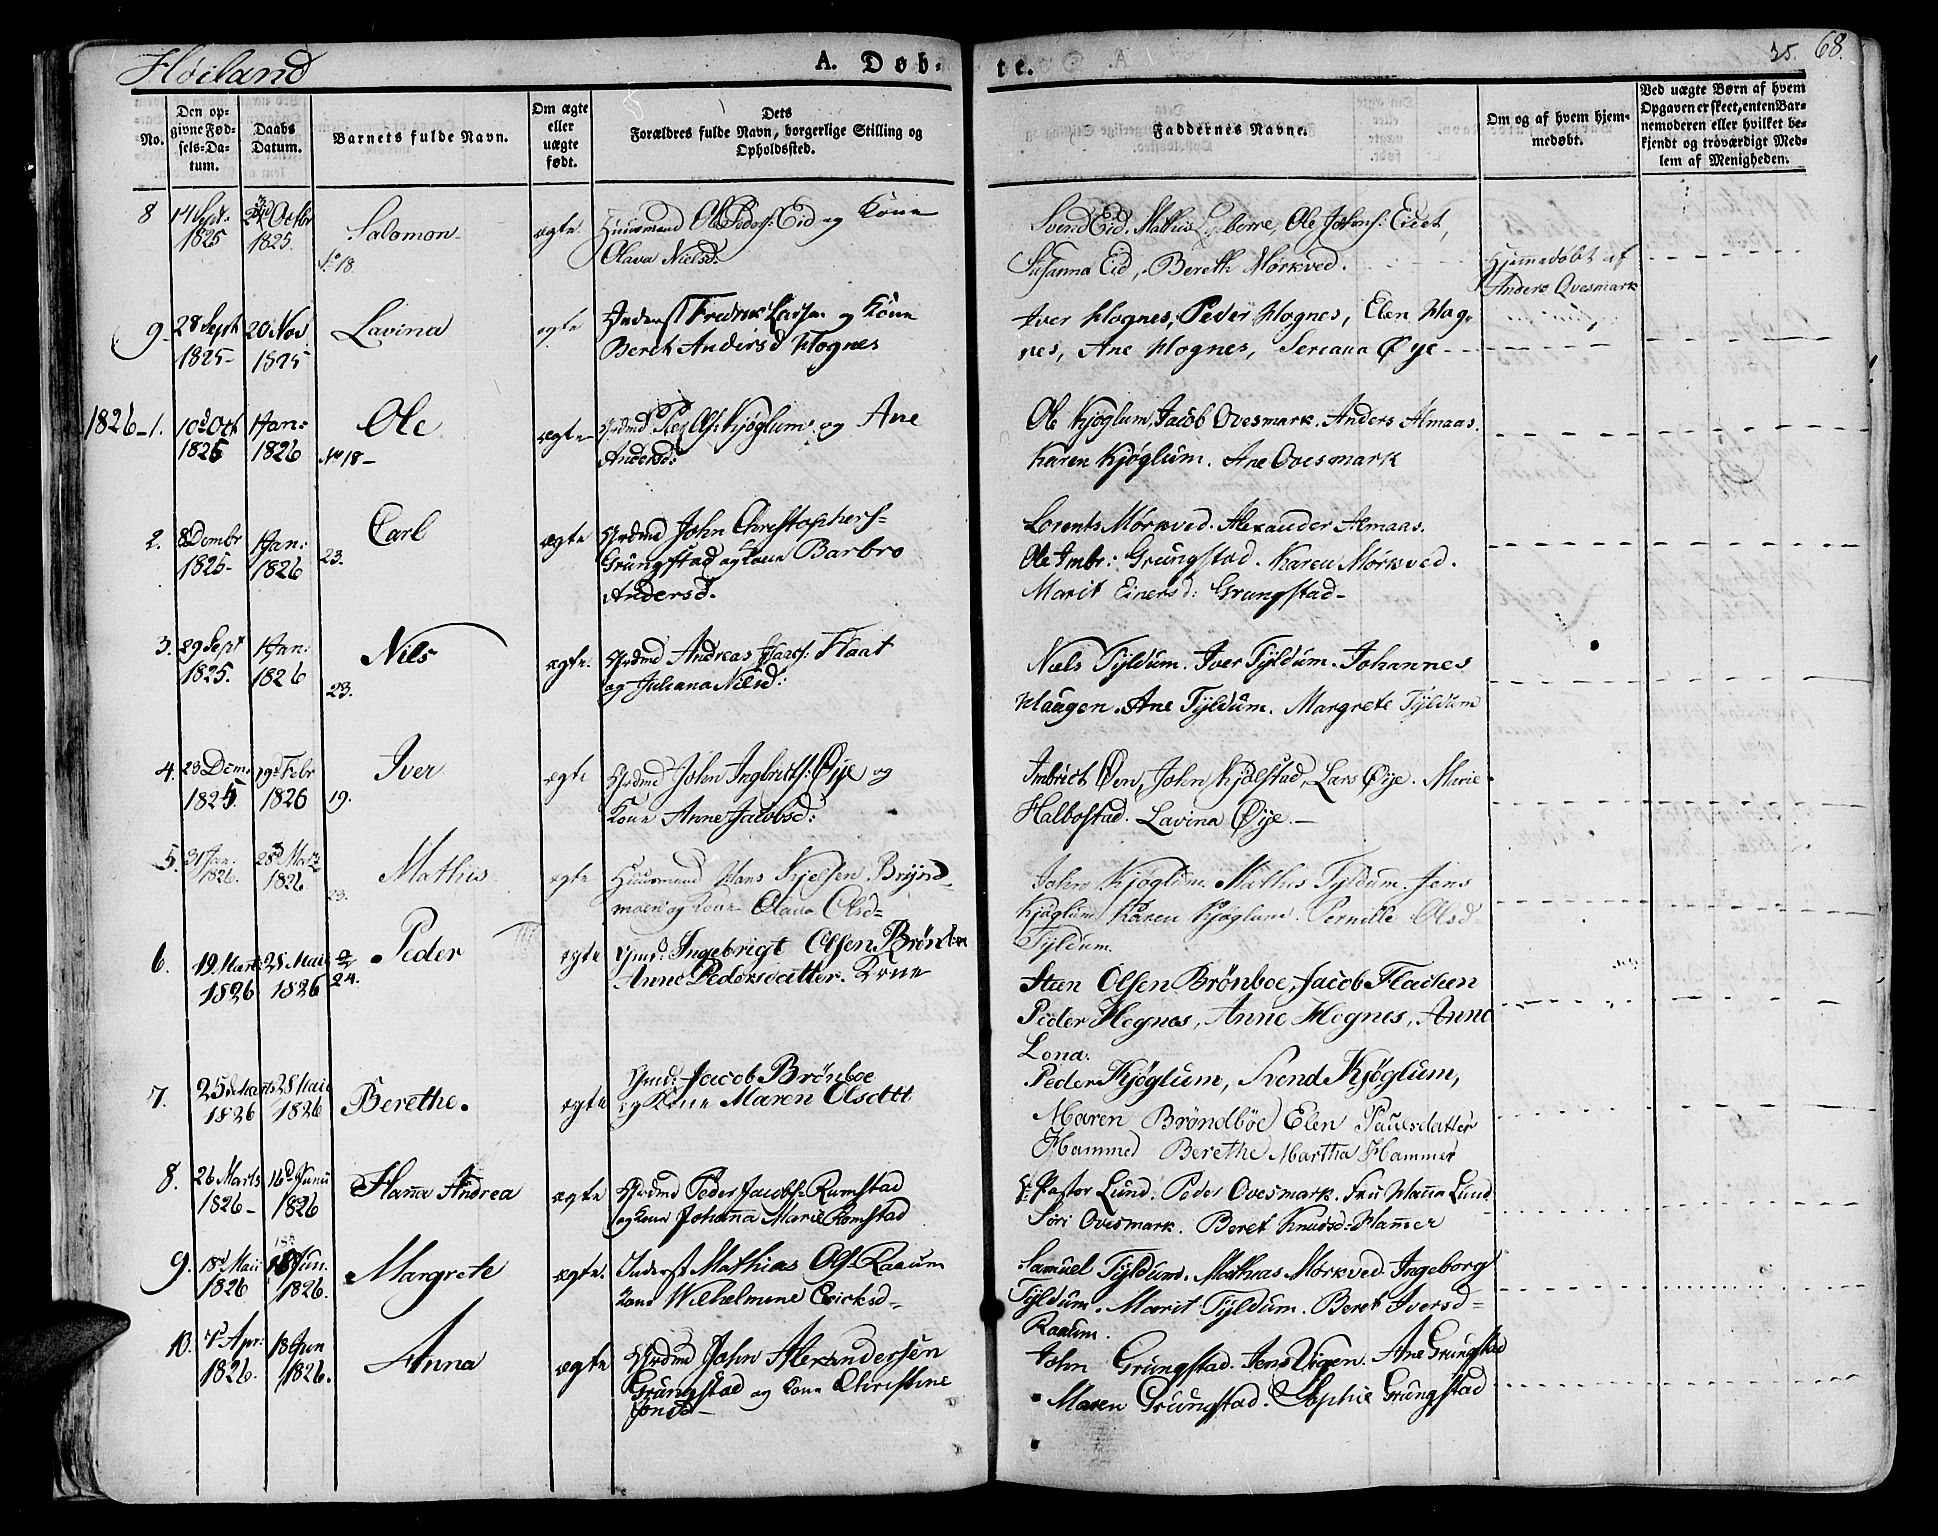 Høiland
A. Døbte.
35. 68.
No.
Den opgivne Fødsels-Datum.
Daabs Datum.
Barnets fulde Navn.
Om ægte eller uægte født.
Dets Forældres fulde Navn, borgerlige Stilling og Opholdssted.
Faddernes Navne.
Om og af hvem hjemmedøbt.
Ved uægte Børn af hvem Opgaven er skeet, enten Barnemoderen eller hvilket bekjendt og troværdigt Medlem af Menigheden.
8 14 Sept: 1825 Octbr 1825. Salomon ægte Huusmand Ole Peders: Eid og Kone
Olava Nielsd:
Svend Eid. Mathis Ole Johns: Eidet,
Susanna Eid, Bereth Mørkved.
Hjemmedøbt af
Anders Qvesmark
9. 28 Sept 1825- 20 Nov 1825 Lavina ægte Inderst Fredrik Larsen og Kone
Beret Andersd Hognes
Iver Hognes, Peder Hognes, Elen Hog-
nes, Ane Hognes, Seriana Øye
1826-1. 10d Oct 1825 1 Jan: 1826 No 18- Ole ægte Grdmd Ols: Kjøglum og Ane
Andersd:
Ole Kjøglum, Jacob Ovesmark. Anders Almaas.
Karen Kjøglum. Ane Ovesmark
2. 8 Dembr 1825- 1 Jan: 1826 23. Carl ægte Grdmd John Christophers-
Grungstad og Kone Barbro
Andersd.
Lorents Mørkved. Alexander Almaas.
Ole Imbr: Grungstad. Karen Mørkved.
Marit Einersd: Grungstad-
3. 29 Sept 1825. 1 Jan: 1826 23. Nils ægte. Grdmd Andreas Flaat
og Juliana Nilsd:
Niels Tyldum. Iver Tyldum. Johannes
Haugen. Ane Tyldum. Margrete Tyldum
4. 23 Dem. 1825. 19d Febr 1826 19. Iver ægte Grdmd John Ingbricts: Øye og
Kone Anne Jacobsd:
Imbrict Øen, John Kjølstad, Lars Øye. Marie
Halbostad. Lavina Øye.
5. 31 Jan: 1826. 28 Marz 1826 23. Mathis ægte Huusmand Hans Kjelsen Brynd-
moen og Kone Olava Olsd-
John Kjøglum. Mathis Tyldum. Jens
Kjøglum Karen Kjøglum. Pernille Olsd-
Tyldum.
6. 19. Mart: 1826 28 Maii 1826 24. Peder ægte Gmd: Ingebrigt Olsen Brønboe
Anne Pedersdatter. Kone
Steen Olsen Brønboe, Jacob Flachen
Peder Hognes, Anne Hognes, Anne
Lona.
7. 25 Marts 1826 28 Maii 1826 Berethe. ægte Gmd: Jacob Brønboe
og Kone Maren Olsdtt
Peder Kjøglum, Svend Kjøglum,
Maren Brøndbøe Elen Paulsdatter
Hammed Berethe Martha Hammer
8. 26 Marts 1826- 16d Junii 1826 Hanna Andrea ægte Grdmd Peder Jacobs: Rumstad
og Kone Johanna Marie Romstad
Pastor Lund. Peder Ovesmark. Fru Hanna Lund.
Siri Ovesmark. Beret Knudsd: Hammer
9. 18d Maii 1826 18 Jun. 1826. Margrete ægte. Inderst Mathias Ols- Raaum
Kone Wilhelmine Ericksd-
Samuel Tyldum. Mathias Mørkved. Ingeborg
Tyldum. Marit Tyldum. Beret Iversd-
Raaum.
10. 7d Apr: 1826. 18 Jun 1826. Anna ægte Grdmd John Alexandersen
Grungstad og Kone Christine
Jonsd-
John Grungstad. Jens Vigen. Ane Grungstad
Maren Grungstad. Sophie Grungstad